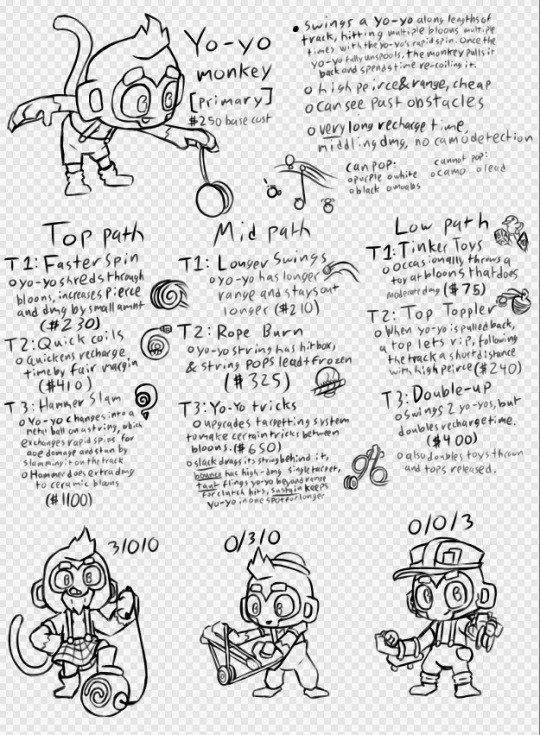 Yo-yo
monkey
[primary]
$250 base cost
• Swings a yo-yo along lengths of
track, hitting multiple bloons multiple
times with the yo-yo's rapid spin. Once the
yo-yo fully unspools, the monkey pulls it
back and spends time re-coiling it.
o high peirce & range, cheap
o can see past obstacles
o very long recharge time,
middling dmg, no camo detection
can pop:
o purple o white
o black o moabs
cannot pop:
o camo o lead
Top path
T1: Faster spin
o yo-yo shreds through
bloons, increases pierce
and dmg by small amnt
($230)
T2: Quick coils
o quickens recharge
time by fair margin
($410)
T3: Hammer Slam
o Yo-yo changes into a
metal ball on a string, which
exchanges rapid spins for
aoe damage and stun by
slamming it on the track
o Hammer does extra dmg
to ceramic bloons
($1100)
Mid path
T1: Longer Swings
o yo-yo has longer
range and stays out
longer ($210)
T2: Rope Burn
o yo-yo string has hitbox,
& string pops lead + frozen
($325)
T3: Yo-Yo tricks
o upgrades targetting system
to make certain tricks between
bloons. ($650)
o slack drags its string behind it,
bounce has high-dmg single target,
taut flings yo-yo beyond range
for clutch hits, sustain keeps
yo-yo in one spot for longer
Low path
T1: Tinker Toys
o occasionally throws a
toy at bloons that does
moderate dmg ($75)
T2: Top Toppler
o When yo-yo is pulled back,
a top lets rip, following
the track a short distance
with high peirce ($240)
T3: Double-up
o swings 2 yo-yos, but
doubles recharge time.
($400)
o also doubles toys thrown
and tops released.
3/0/0
0/3/0
0/0/3